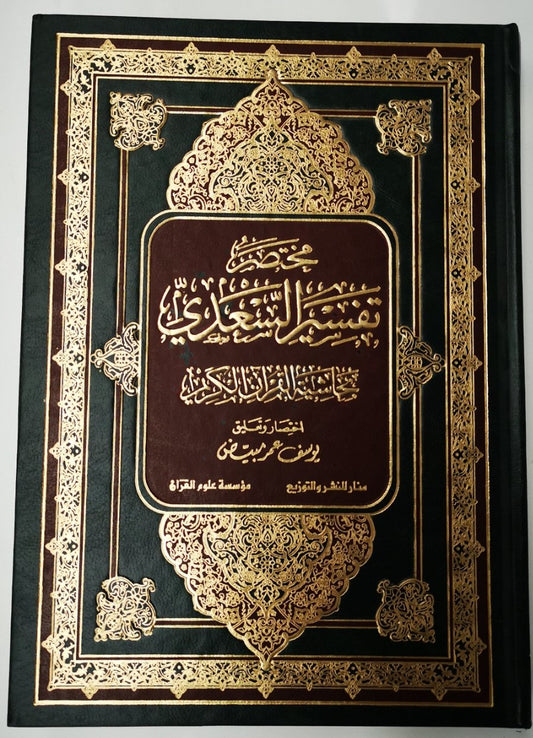 مختصر
تفسير السعدي
بحاشية القرآن الكريم
اختصار وتعليق
يوسف عمر مبيض
منار للنشر والتوزيع مؤسسة علوم القرآن